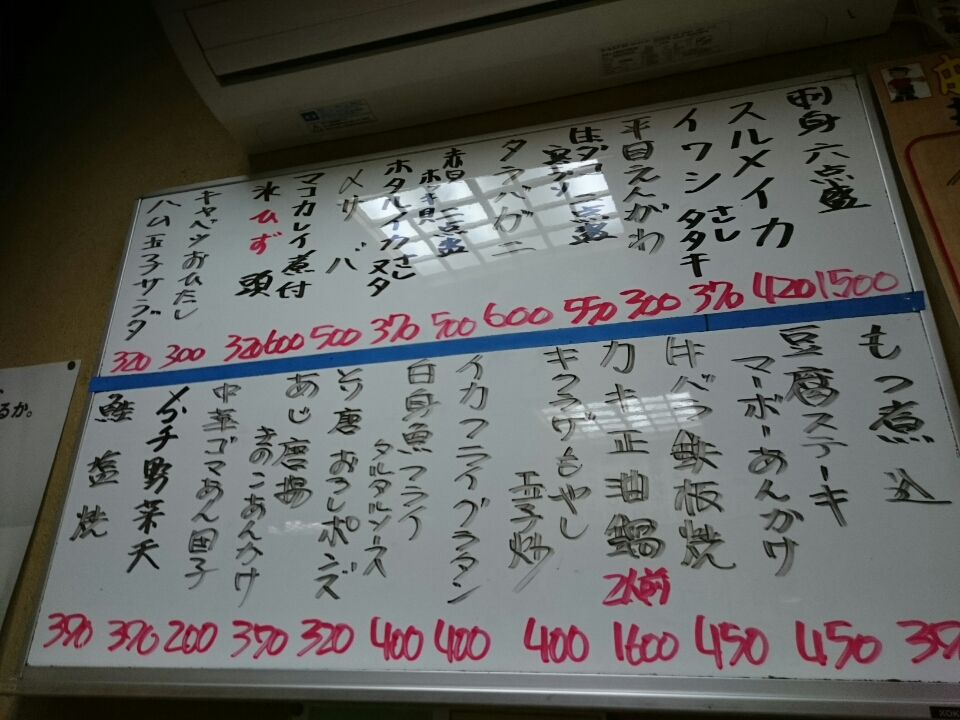 刺身六点盛 1500
スルメイカ 420
イワシ さし タタキ 370
平目えんがわ 300
生ダコ 二点盛 550
タラバガニ 600
赤貝 ホッキ貝 二点盛 500
ホタルイカ さし ヌタ 370
〆サバ 500
マコカレイ煮付 600
氷ひず頭 320
キャベツおひたし 300
ハム玉子サラダ 320
もつ煮込 35
豆腐ステーキ
マーボーあんかけ 450
牛バラ鉄板焼 450
カキ正油鍋 2人前 1600
キクラゲもやし
玉子炒 400
イカフライグラタン 400
白身魚フライ
タルタルソース 400
とり唐おろしポンズ
あじ唐揚 320
きのこあんかけ 370
中華ゴマあん団子 200
メゴチ野菜天 370
鮭塩焼 370
るか。